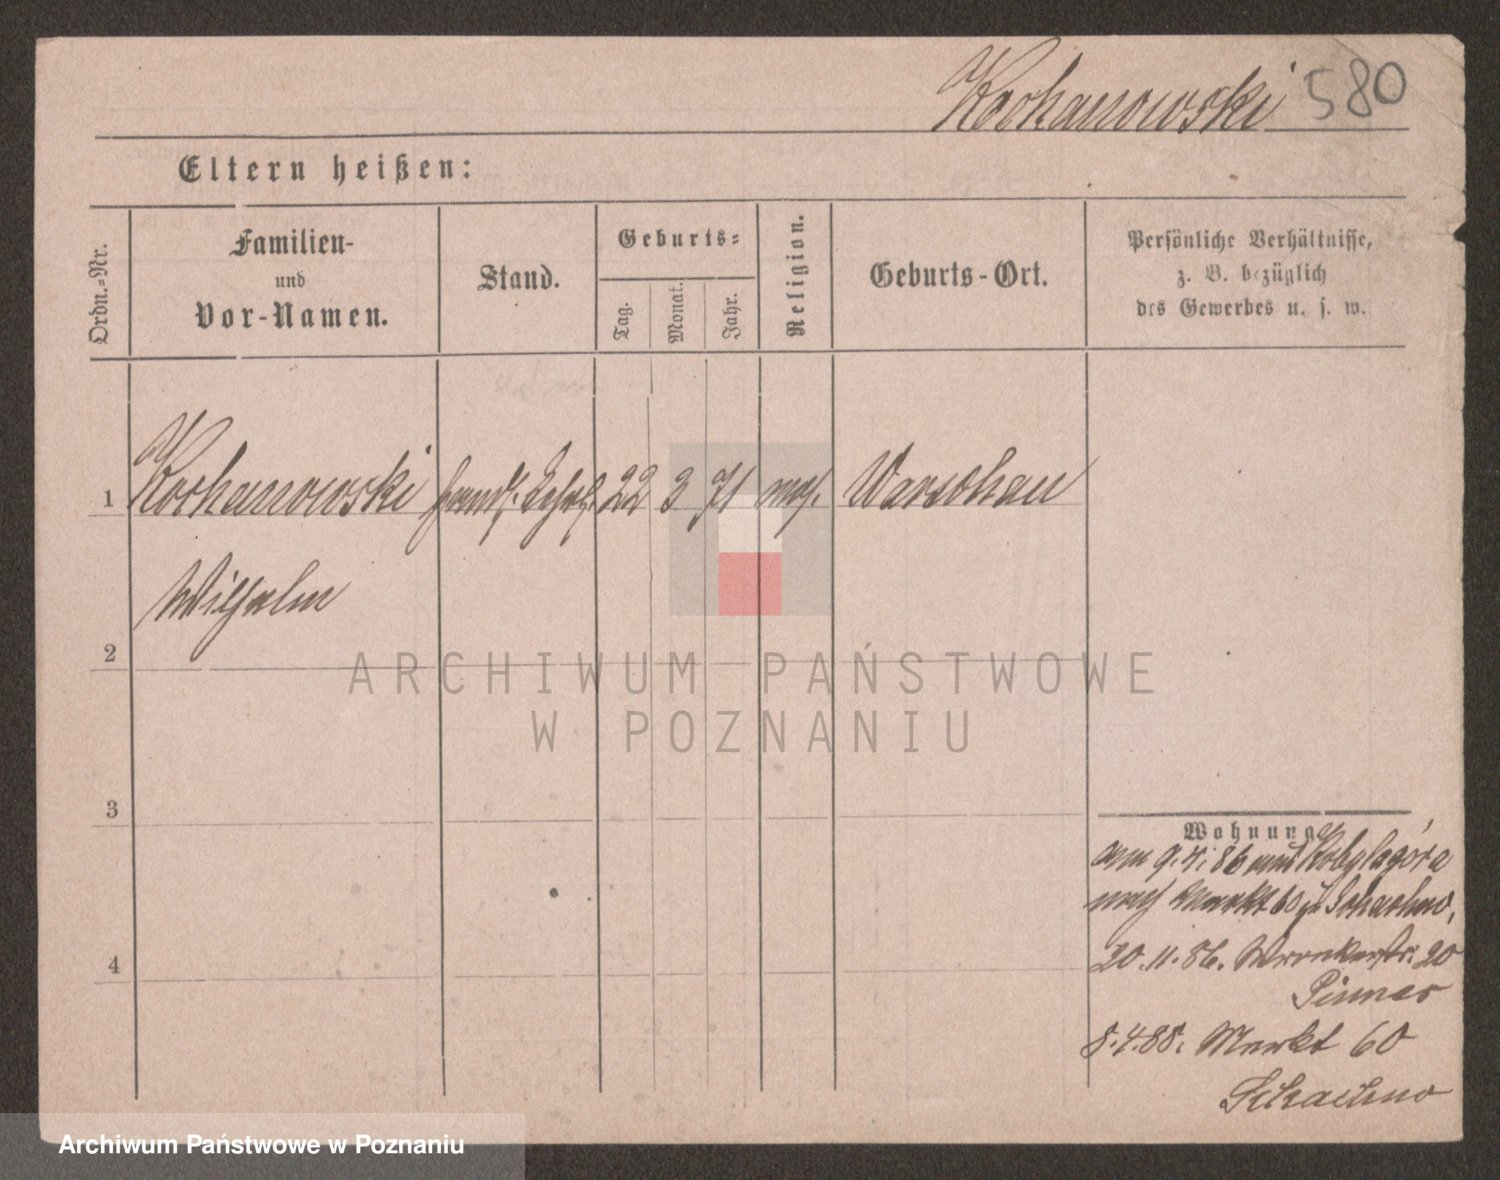 Kochanowski 580
Eltern heißen:
Ordn.-Nr.
Familien-
und
Vor-Namen.
Stand.
Geburts-
Tag.
Monat.
Jahr.
Religion.
Geburts-Ort.
Persönliche Verhältnisse,
z. B. bezüglich
des Gewerbes u. s. w.
1 Kochanowski 22 3 71 mos. Warschau
Wilhelm
2
3
4
Wohnung.
am 9.4.86 aus Kobylagóra
nach Markt 60
20.11.86. Wronkerstr. 20
Pinnas
8.4.88. Markt 60
ARCHIWUM PAŃSTWOWE
W POZNANIU
Archiwum Państwowe w Poznaniu